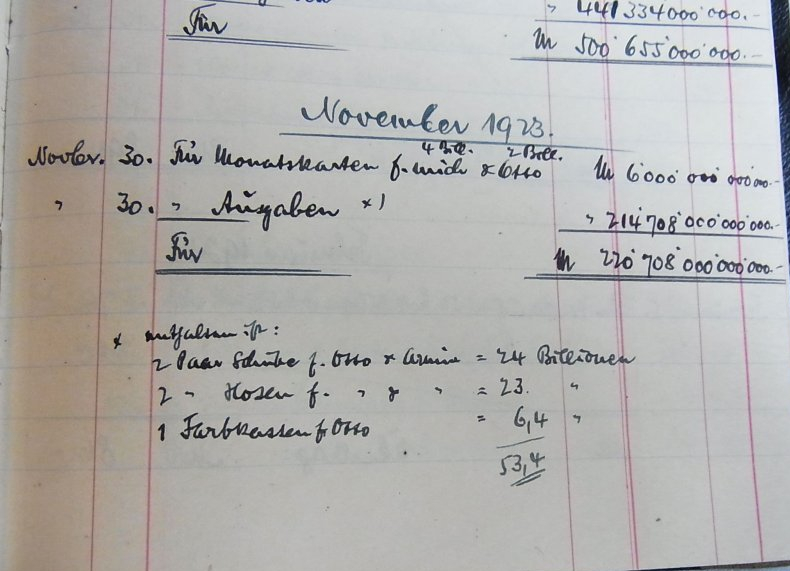 " 441 334 000 000.-
Für M 500 655 000 000.-
November 1923.
4 Bill. 2 Bill.
Novbr. 30. Für Monatskarten f. mich & Otto M 6 000 000 000 000.-
" 30. " Ausgaben *) " 214 708 000 000 000.-
Für M 220 708 000 000 000.-
* enthalten ist:
2 Paar Schuhe f. Otto & Armin = 24 Billionen
2 " Hosen f. " & " = 23. "
1 Farbkasten f Otto = 6,4 "
53,4